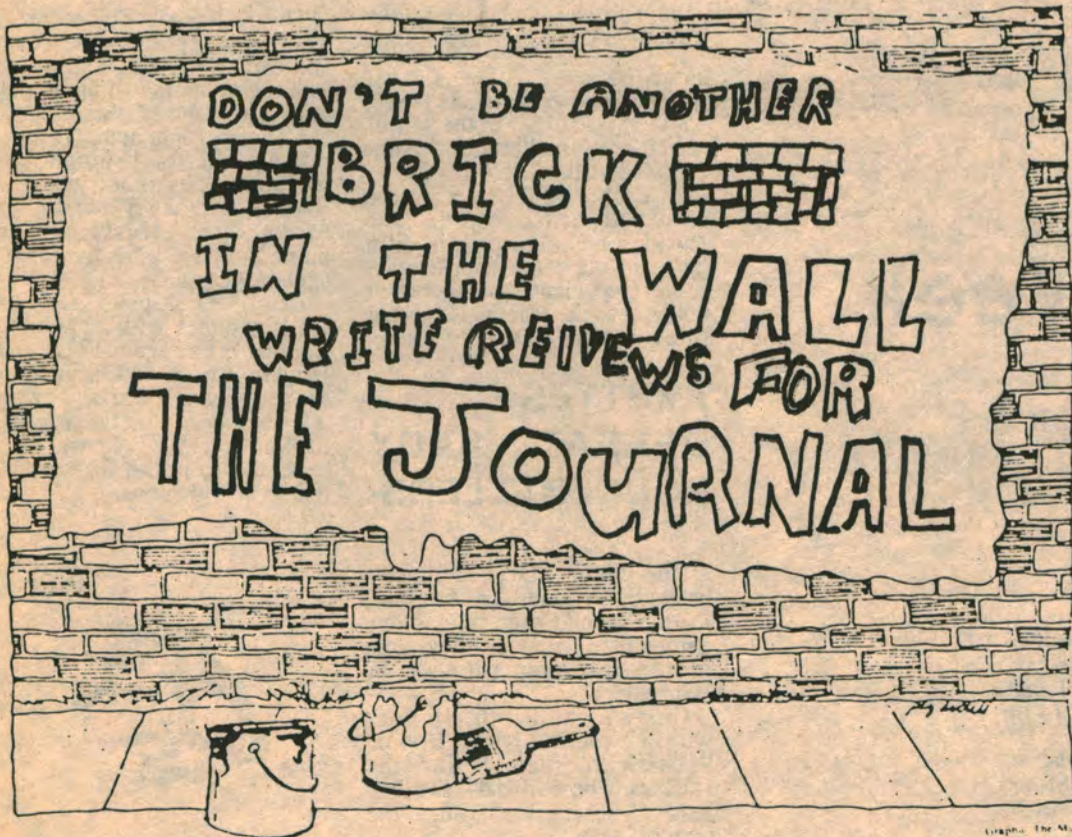 DON'T BE ANOTHER
BRICK
IN THE WALL
WRITE REIVEWS FOR
THE JOURNAL